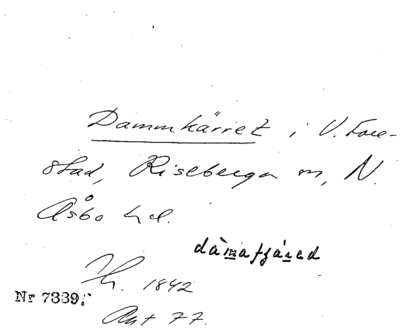 Dammkärret i V. Fore-
stad, Riseberga sn, N.
Åsbo hd.
dàmatjárəd
Jh. 1842
Nr 7339.
Ant 77.